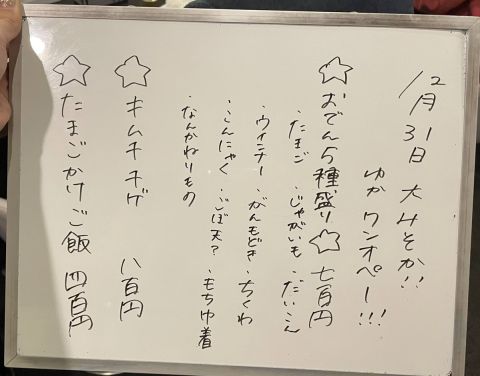 12月31日 大みそか!!
ゆか ワンオペー!!!
☆おでん5種盛り☆ 七百円
・たまご ・じゃがいも ・だいこん
・ウインナー ・がんもどき ・ちくわ
・こんにゃく ・ごぼ天? ・もちゆ着
・なんかねりもの
☆キムチチゲ 八百円
☆たまごかけご飯 四百円